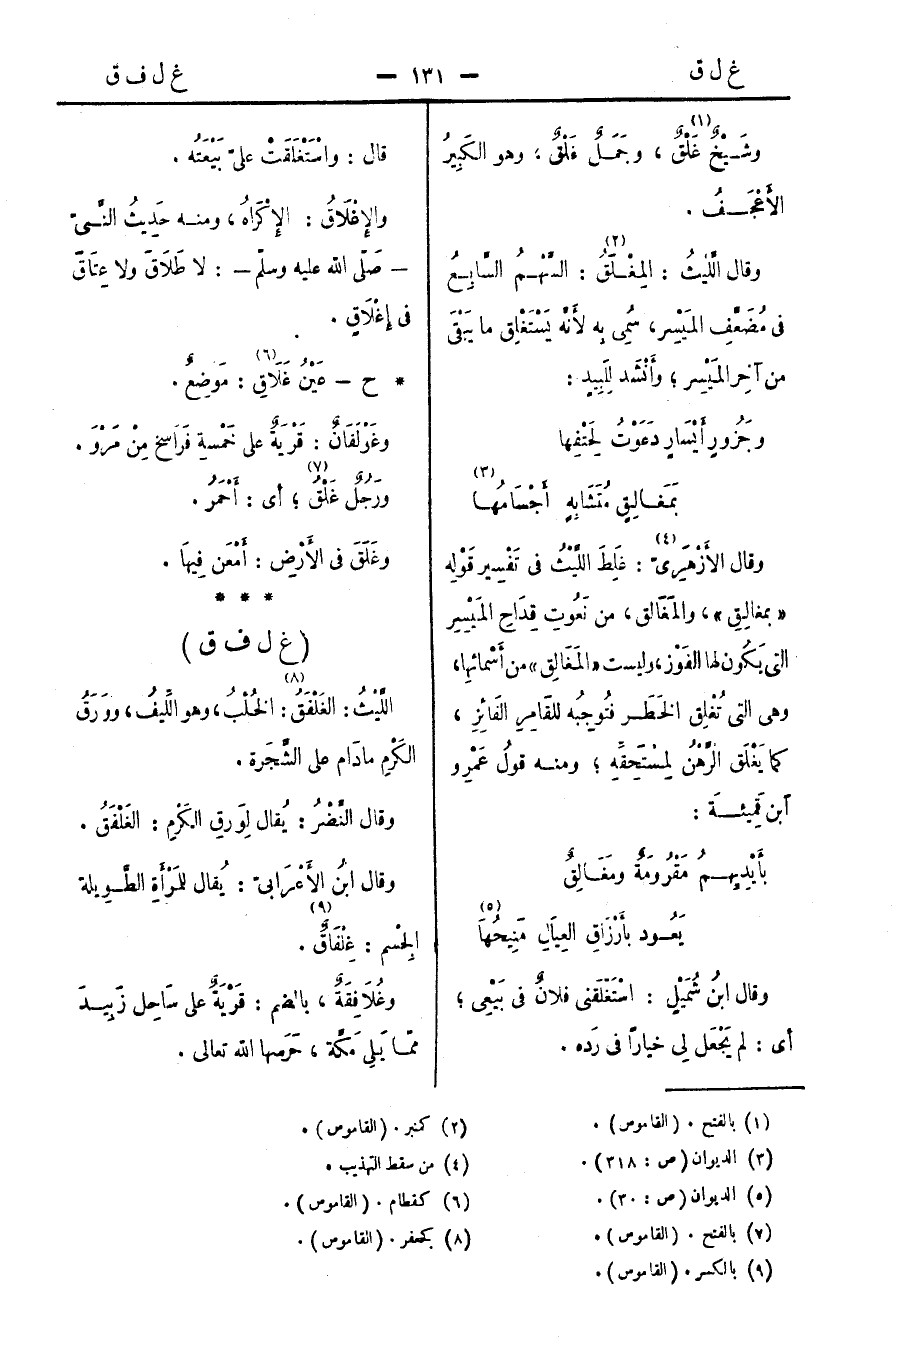 غ ل ق — ١٣١ — غ ل ف ق
(١)
وشَيْخٌ غَلْقٌ ، وجَمَلٌ غَلْقٌ ؛ وهو الكَبِيرُ
الأَعْجَفُ .
(٢)
وقال اللَّيثُ : المِغْلَقُ : السَّهْمُ السَّابِعُ
فى مُضَعَّفِ المَيْسِر ، سُمِّى به لأَنَّه يَسْتَغْلِق ما يَبْقَى
من آخِرِ المَيْسِر ؛ وأَنْشَد لِلَبِيدٍ :
وجَزُورِ أَيْسَارٍ دَعَوْتُ لِحَتْفِها
(٣)
بمَغَالِقٍ مُتَشَابِهٍ أَجْسَامُهَا
(٤)
وقال الأَزْهَرِىّ : غَلِطَ اللَّيْثُ فى تَفْسِير قَوْلِه
« بمغالِقٍ » ، والمَغَالق ، من نَعُوتِ قِدَاحِ المَيْسِرِ
التى يَكُون لها الفَوْز ، وليست « المَغَالِق » من أَسْمائها ،
وهى التى تُغْلِق الخَطَر فتُوجِبُه للقَامِرِ الفَائِزِ ،
كما يَغْلَق الرَّهْنُ لمِسْتَحِقِّه ؛ ومنه قولُ عَمْرِو
آبن قَمِيئَة :
بأَيْدِيهِمُ مَقْرُومَةٌ ومَغَالِقٌ
(٥)
يَعُود بأَرْزَاقِ العِيَالِ مَنِيحُهَا
وقال ابنُ شُمَيْلٍ : اسْتَغْلَقَنى فلانٌ فى بَيْعِى ؛
أى : لم يَجْعَل لِى خيارًا فى رَده .
قال : واسْتَغْلَقَتْ علىّ بَيْعَتُه .
والإِغْلَاقُ : الإِكْرَاهُ ، ومنه حَدِيثُ النَّبىّ
— صَلّى الله عليه وسلّم — : لا طَلَاقَ ولا عِتَاقَ
فى إغْلَاقٍ .
(٦)
* ح — عَيْنُ غَلَاقِ : مَوضِعٌ .
وغَوْلَقَانٌ : قَرْيَةٌ على خَمْسةِ فَرَاسِخ مِنْ مَرْوَ .
(٧)
ورَجُلٌ غَلْقٌ ؛ أى : أَحْمَرُ .
وغَلَقَ فى الأَرْض : أَمْعَن فِيهَا .
* * *
( غ ل ف ق )
(٨)
اللَّيْثُ : الغَلْفَقُ : الخُلْبُ ، وهو اللِّيفُ ، ووَرَقُ
الكَرْمِ مادَام على الشَّجَرة .
وقال النَّضْرُ : يُقال لِوَرقِ الكَرْمِ : الغَلْفَقُ .
وقال ابنُ الأَعْرَابىّ : يُقال للمَرْأَةِ الطَّوِيلة
(٩)
الجِسْم : غِلْفَاقٌ .
وغُلَافِقَةٌ ، بالضم : قَرْيَةٌ على سَاحِل زَبِيدَ
ممّا يَلِى مَكّة ، حَرَسها الله تعالى .
(١) بالفتح . (القاموس) .
(٢) كمنبر . (القاموس) .
(٣) الديوان (ص : ٣١٨) .
(٤) من سقط التهذيب .
(٥) الديوان (ص : ٣٠) .
(٦) كقطام . (القاموس) .
(٧) بالفتح . (القاموس) .
(٨) كجعفر . (القاموس) .
(٩) بالكسر . (القاموس) .